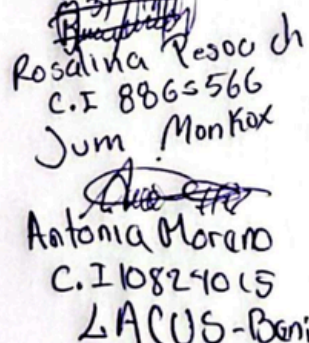 Rosalina Pesoa ch
C.I 8865566
Jum Monkox
Antonia Morano
C.I 10824015
LACUS-Beni